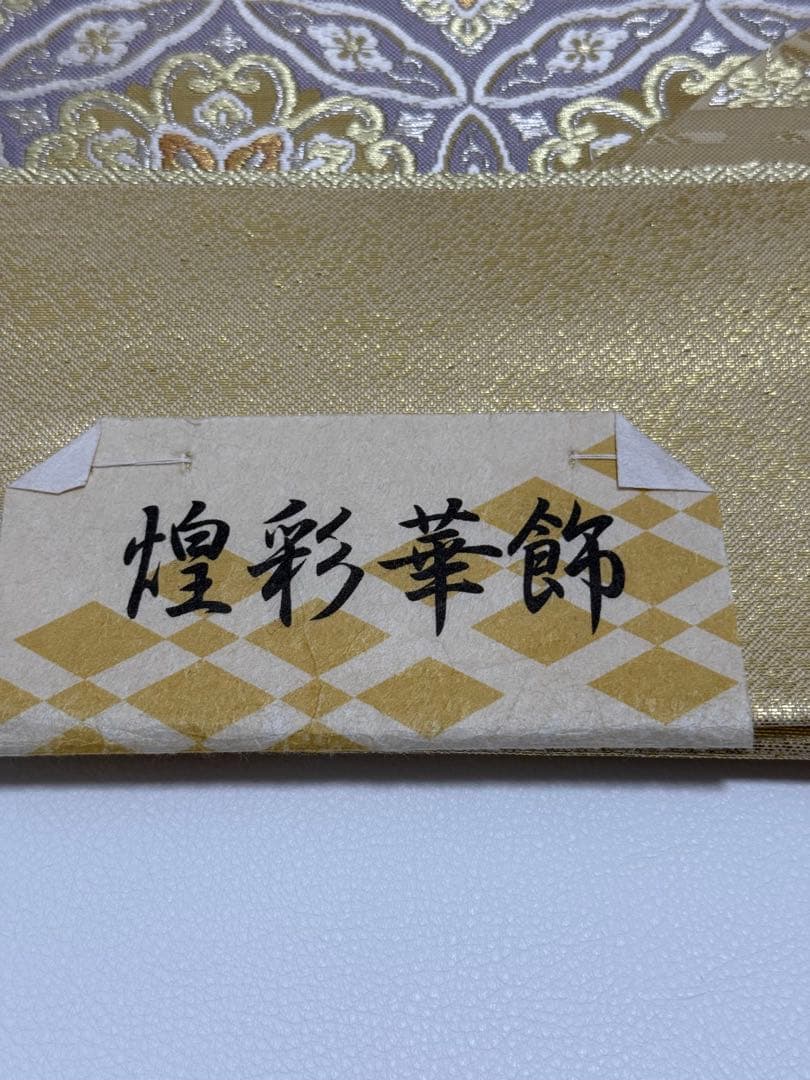 煌彩華飾